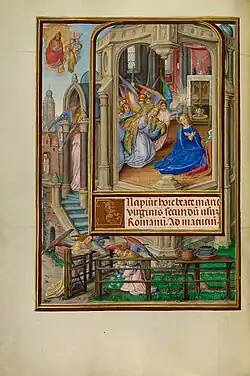 Incipiu͂t hore beate marie
virginis secundu͂ usu͂
Romanu͂. Ad matutin͂.